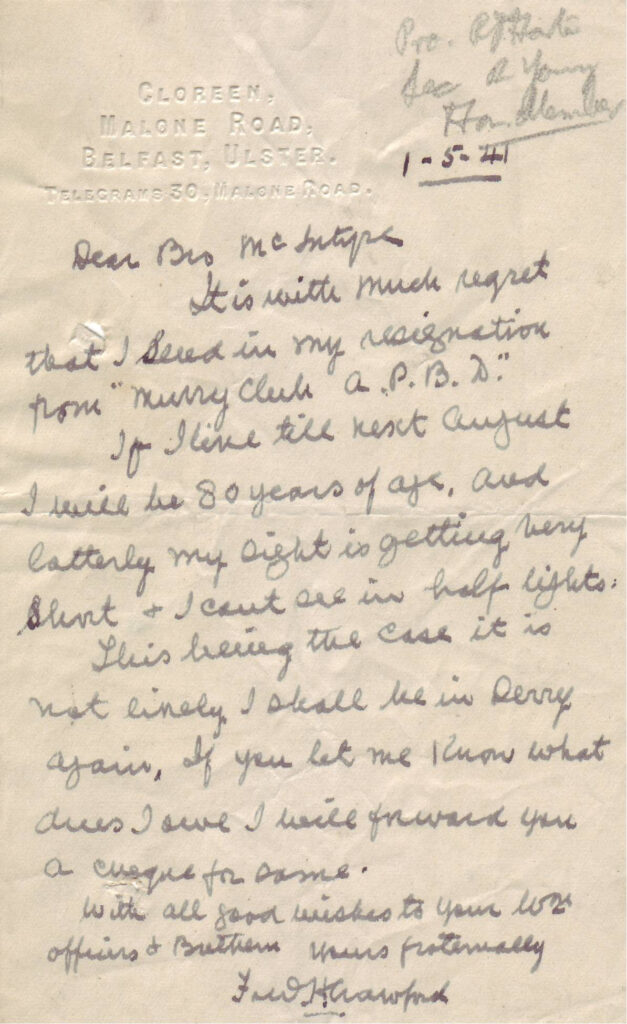 CLOREEN,
MALONE ROAD,
BELFAST, ULSTER.
TELEGRAMS 30, MALONE ROAD.
Pro.
Sec R Young
Hon. Member
1-5-41
Dear Bro McIntyre
It is with much regret
that I send in my resignation
from "Murry Club A.P.B.D."
If I live till next August
I will be 80 years of age, and
latterly my sight is getting very
short & I cant see in half lights.
This being the case it is
not likely I shall be in Derry
again, If you let me know what
dues I owe I will forward you
a cheque for same.
With all good wishes to your
officers & Brethern yours fraternally
Fred H Crawford